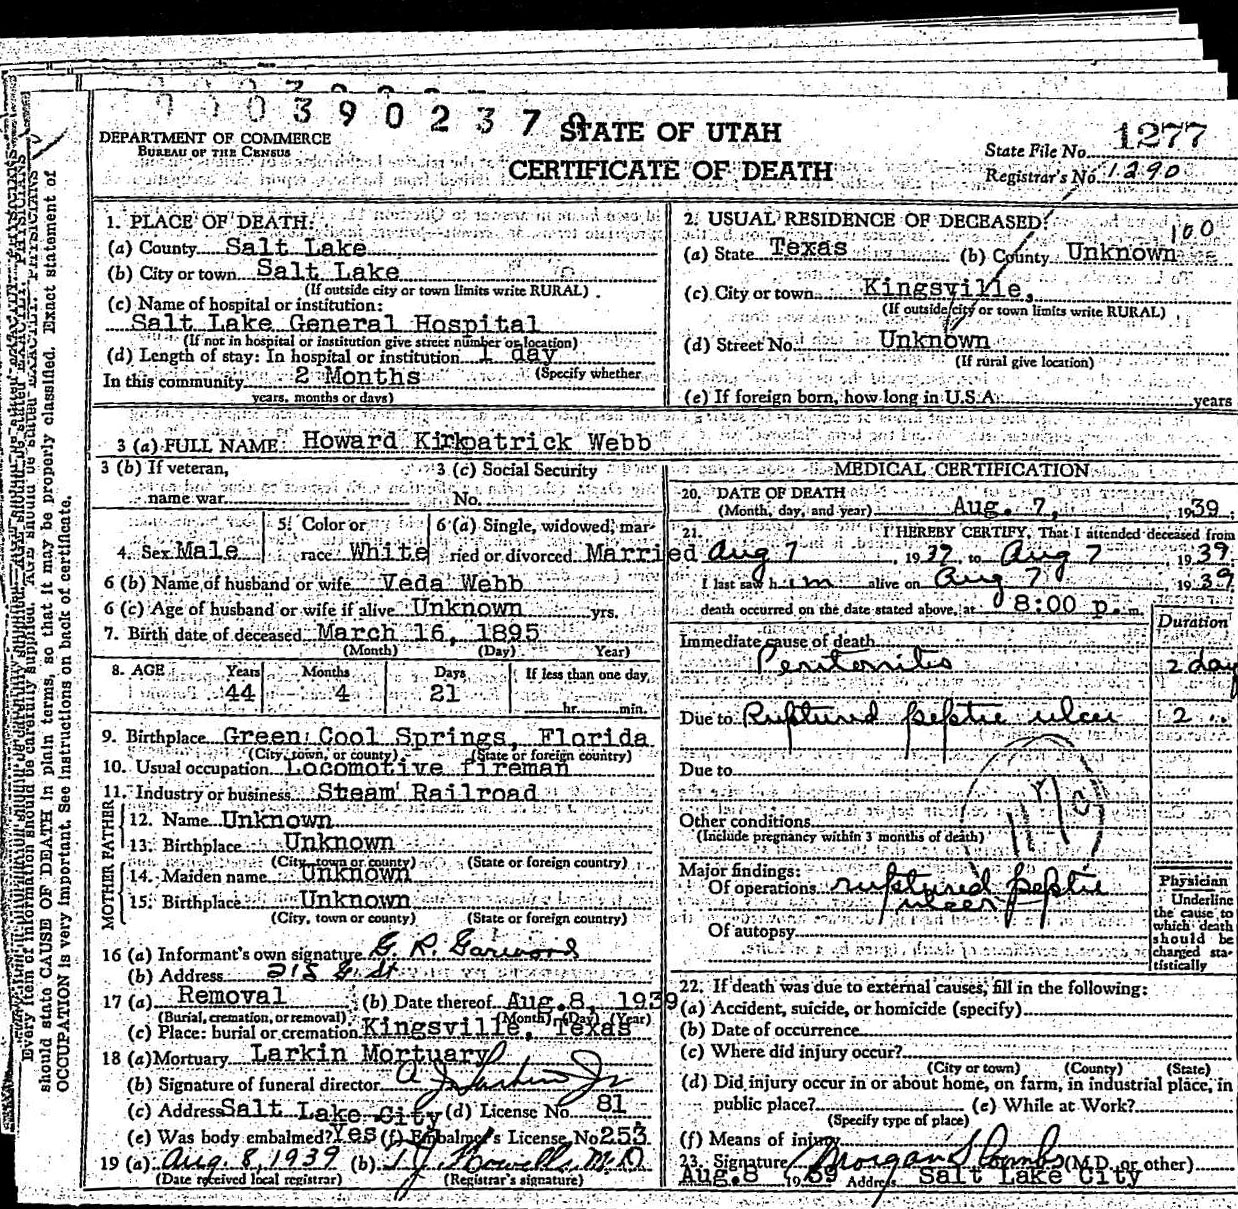 0 0 0 3 9 0 2 3 7 9
DEPARTMENT OF COMMERCE
BUREAU OF THE CENSUS
STATE OF UTAH
CERTIFICATE OF DEATH
State File No. 1277
Registrar's No. 1290
1. PLACE OF DEATH:
(a) County Salt Lake
(b) City or town Salt Lake
(If outside city or town limits write RURAL)
(c) Name of hospital or institution:
Salt Lake General Hospital
(If not in hospital or institution give street number or location)
(d) Length of stay: In hospital or institution 1 day
(Specify whether
In this community 2 Months
years, months or days)
2. USUAL RESIDENCE OF DECEASED:
100
(a) State Texas (b) County Unknown
(c) City or town Kingsville,
(If outside city or town limits write RURAL)
(d) Street No. Unknown
(If rural give location)
(e) If foreign born, how long in U.S.A. years
3 (a) FULL NAME: Howard Kirkpatrick Webb
3 (b) If veteran, 3 (c) Social Security
name war No.
4. Sex Male 5. Color or race White 6 (a) Single, widowed, married or divorced Married
6 (b) Name of husband or wife Veda Webb
6 (c) Age of husband or wife if alive Unknown yrs.
7. Birth date of deceased March 16, 1895
(Month) (Day) Year)
8. AGE Years Months Days If less than one day
44 4 21 hr. min.
9. Birthplace Green Cool Springs, Florida
(City, town, or county) (State or foreign country)
10. Usual occupation Locomotive fireman
11. Industry or business Steam Railroad
FATHER
12. Name Unknown
13. Birthplace Unknown
(City, town or county) (State or foreign country)
MOTHER
14. Maiden name Unknown
15. Birthplace Unknown
(City, town or county) (State or foreign country)
16 (a) Informant's own signature G. R. Garwood
(b) Address 215 G. St
17 (a) Removal (b) Date thereof Aug. 8, 1939
(Burial, cremation, or removal) (Month) (Day) (Year)
(c) Place: burial or cremation Kingsville, Texas
18 (a) Mortuary Larkin Mortuary
(b) Signature of funeral director A J Larkin Jr
(c) Address Salt Lake City (d) License No. 81
(e) Was body embalmed? Yes (f) Embalmer's License No 253
19 (a) Aug. 8, 1939 (b) T J Howells M.D.
(Date received local registrar) (Registrar's signature)
MEDICAL CERTIFICATION
20. DATE OF DEATH
(Month, day, and year) Aug. 7, 1939
21. I HEREBY CERTIFY, That I attended deceased from
Aug 7, 1939 to Aug 7, 1939
I last saw him alive on Aug 7, 1939
death occurred on the date stated above, at 8:00 p. m.
Duration
Immediate cause of death
Peritonitis 2 day
Due to Ruptured peptic ulcer 2 "
Due to
Other conditions
(Include pregnancy within 3 months of death)
Major findings:
Of operations ruptured peptic
ulcer
Of autopsy
Physician
Underline
the cause to
which death
should be
charged sta-
tistically
22. If death was due to external causes, fill in the following:
(a) Accident, suicide, or homicide (specify)
(b) Date of occurrence
(c) Where did injury occur?
(City or town) (County) (State)
(d) Did injury occur in or about home, on farm, in industrial place, in
public place? (e) While at Work?
(Specify type of place)
(f) Means of injury
23. Signature Morgan S Coombs (M.D. or other)
Aug. 8 1939 Address Salt Lake City
should state CAUSE OF DEATH in plain terms, so that it may be properly classified. Exact statement of
OCCUPATION is very important. See instructions on back of certificate.